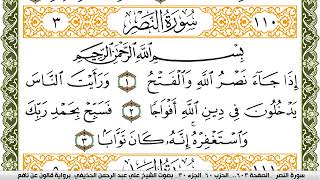 ٣ سُورَةُ النَّصْرِ ١١٠
بِسْمِ اللَّهِ الرَّحْمَٰنِ الرَّحِيمِ
إِذَا جَآءَ نَصْرُ اللَّهِ وَالْفَتْحُ ١ وَرَأَيْتَ النَّاسَ
يَدْخُلُونَ فِي دِينِ اللَّهِ أَفْوَاجًا ٢ فَسَبِّحْ بِحَمْدِ رَبِّكَ
وَاسْتَغْفِرْهُ إِنَّهُ كَانَ تَوَّابًا ٣
سورة النصر الصفحة ٦٠٣ الحزب ٦٠ الجزء ٣٠ بصوت الشيخ علي عبد الرحمن الحذيفي برواية قالون عن نافع